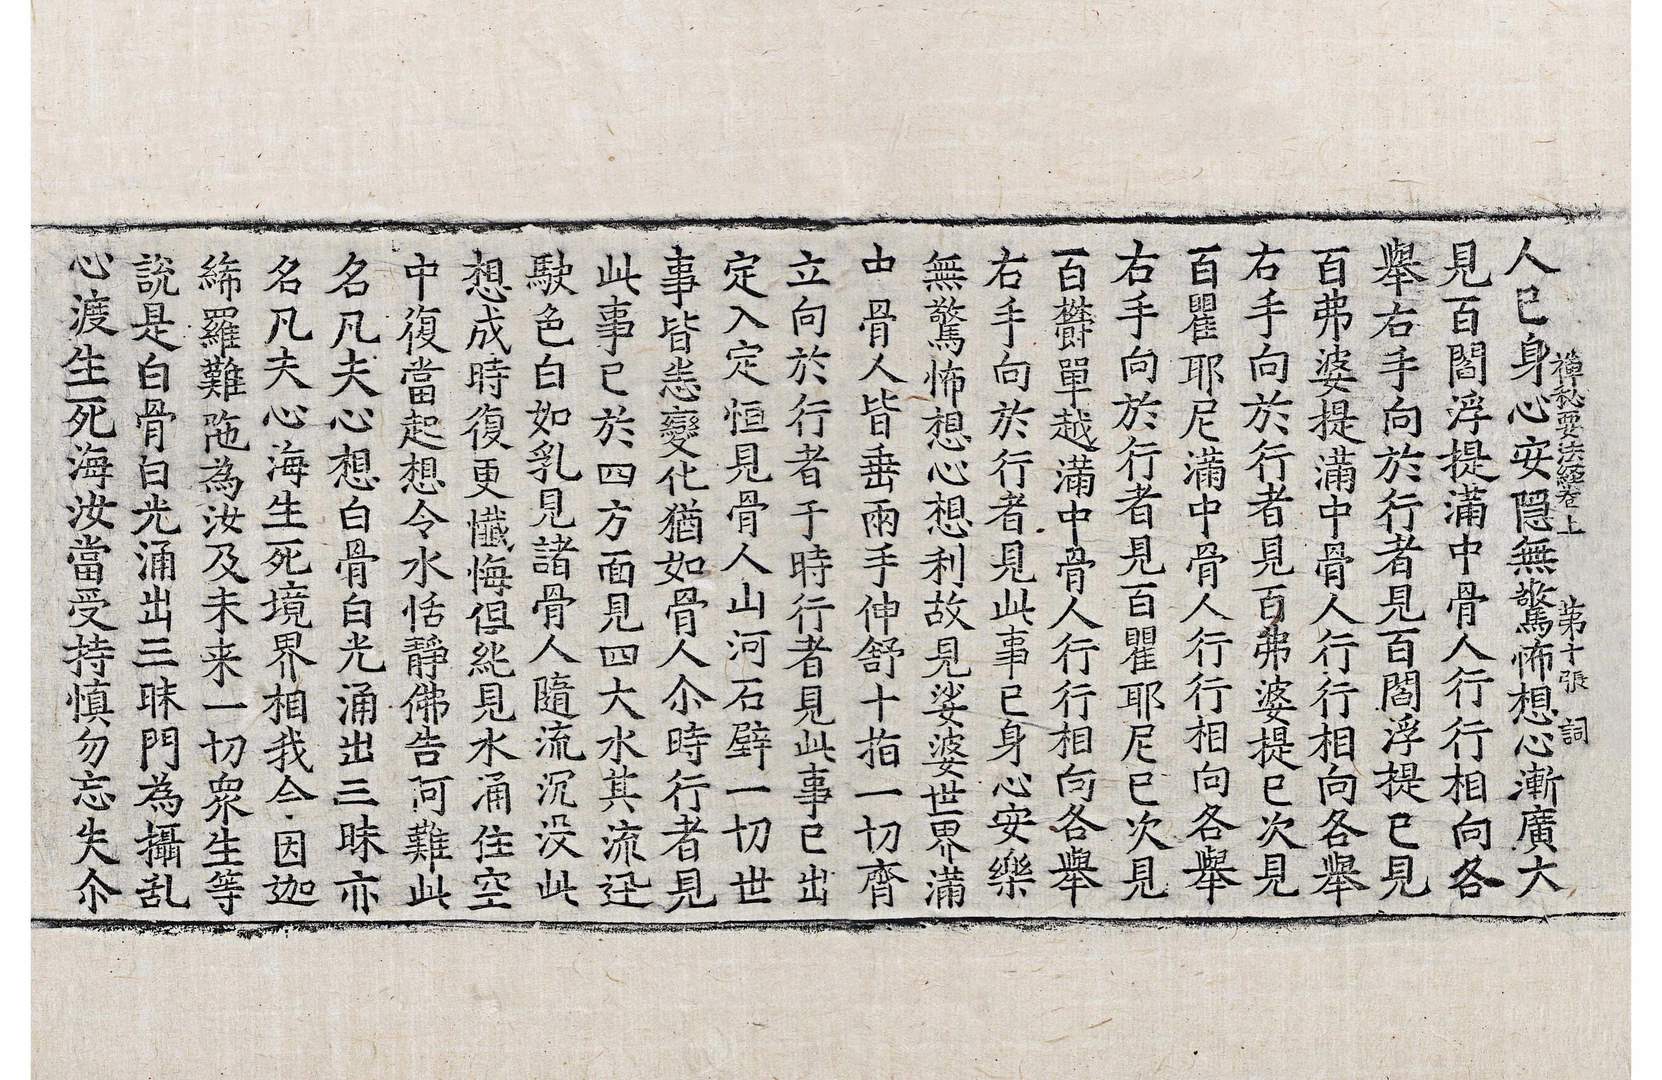 禪秘要法經卷上 第十張 詞
人已身心安隠無驚怖想心漸廣大
見百閻浮提滿中骨人行行相向各
舉右手向於行者見百閻浮提已見
百弗婆提滿中骨人行行相向各舉
右手向於行者見百弗婆提已次見
百瞿耶尼滿中骨人行行相向各舉
右手向於行者見百瞿耶尼已次見
百欝單越滿中骨人行行相向各舉
右手向於行者見此事已身心安樂
無驚怖想心想利故見娑婆世界滿
中骨人皆垂兩手伸舒十指一切齊
立向於行者于時行者見此事已出
定入定恒見骨人山河石壁一切世
事皆悉變化猶如骨人尒時行者見
此事已於四方面見四大水其流迅
駛色白如乳見諸骨人隨流沉没此
想成時復更懺悔但純見水涌住空
中復當起想令水恬靜佛告阿難此
名凡夫心想白骨白光涌出三昧亦
名凡夫心海生死境界相我今因迦
絺羅難陁為汝及未来一切衆生等
說是白骨白光涌出三昧門為攝乱
心渡生死海汝當受持慎勿忘失尒